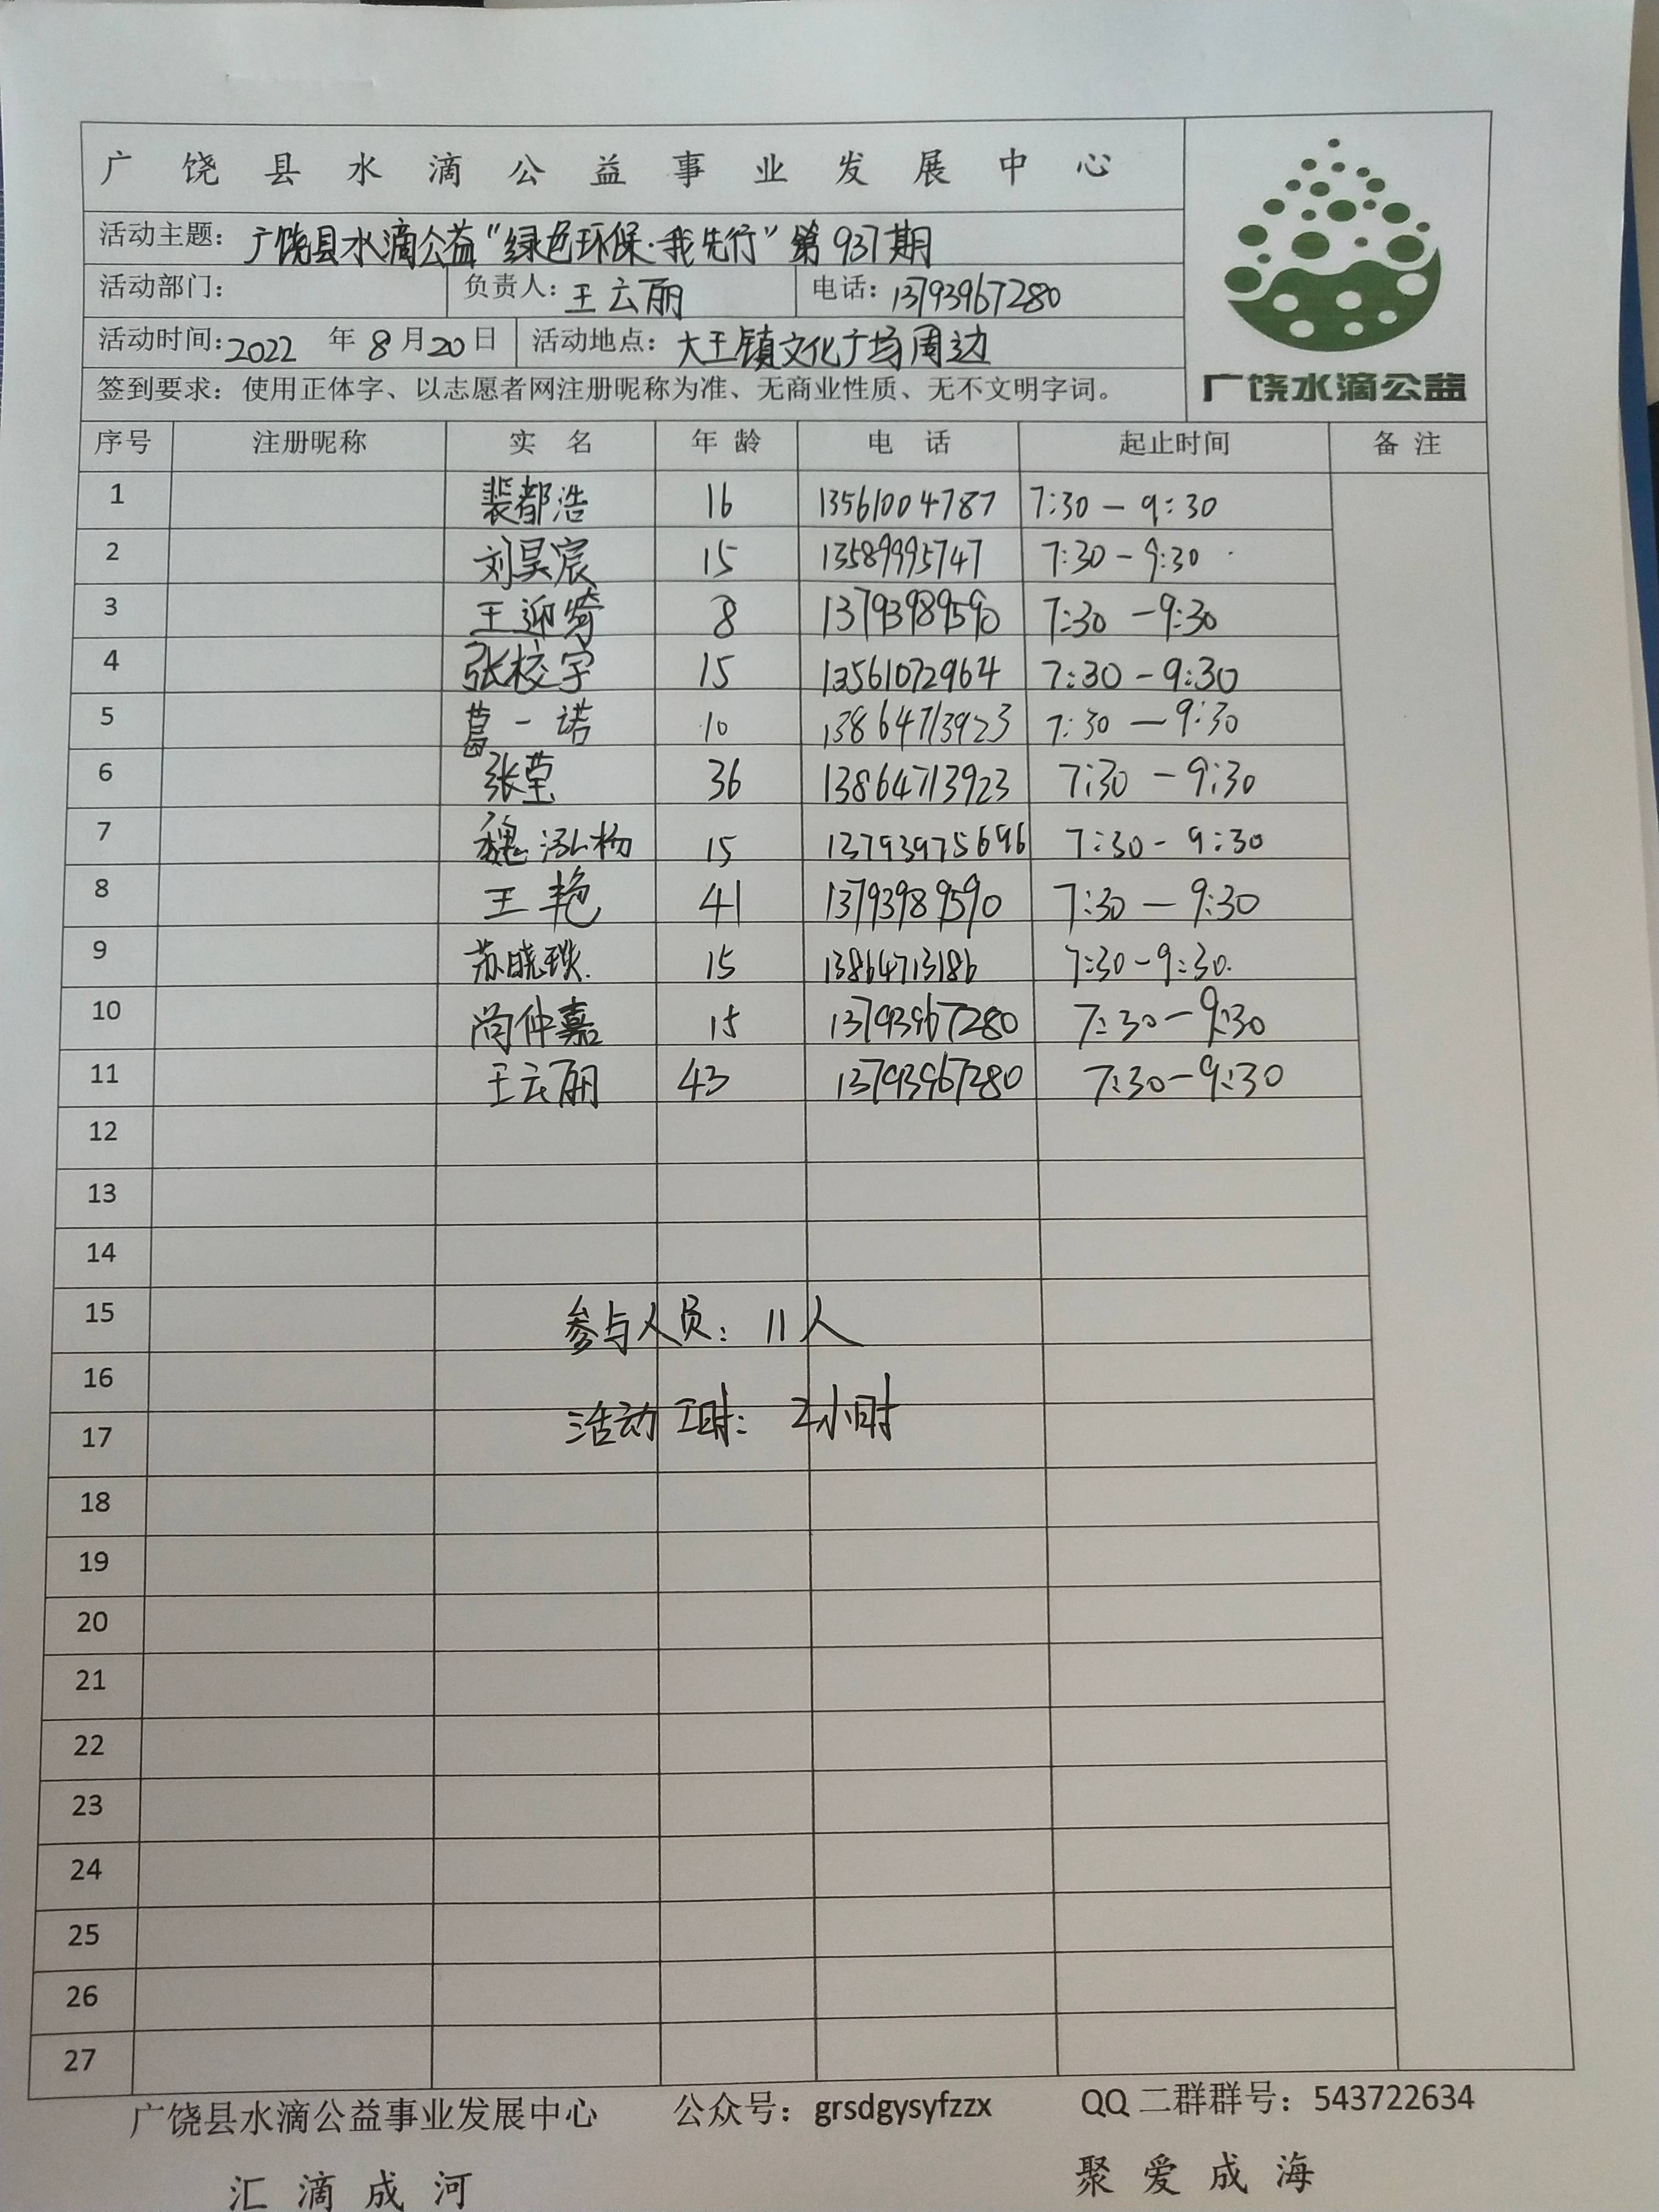 广饶县水滴公益事业发展中心
活动主题：广饶县水滴公益“绿色环保·我先行”第937期
活动部门： 负责人：王云丽 电话：13793967280
活动时间：2022 年 8 月 20 日 活动地点：大王镇文化广场周边
签到要求：使用正体字、以志愿者网注册昵称为准、无商业性质、无不文明字词。
广饶水滴公益
序号 注册昵称 实 名 年 龄 电 话 起止时间 备 注
1 裴都浩 16 13561004787 7:30-9:30
2 刘昊宸 15 13589995747 7:30-9:30
3 王迎 8 13793989590 7:30-9:30
4 张校宇 15 13561072964 7:30-9:30
5 葛一诺 10 13864713923 7:30—9:30
6 张莹 36 13864713923 7:30-9:30
7 魏泓杨 15 13793975696 7:30-9:30
8 王艳 41 13793989590 7:30—9:30
9 苏晓 15 13864713186 7:30-9:30.
10 尚仲嘉 15 13793967280 7:30-9:30
11 王云丽 43 13793967280 7:30-9:30
12
13
14
15 参与人员：11人
16
17 活动工时：2小时
18
19
20
21
22
23
24
25
26
27
广饶县水滴公益事业发展中心 公众号：grsdgysyfzzx QQ 二群群号：543722634
汇滴成河 聚爱成海